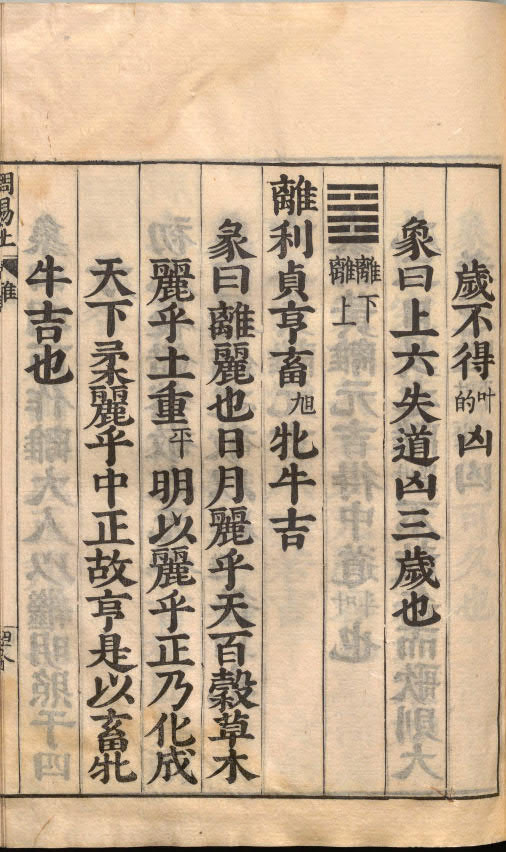 歲不得叶的凶
象曰上六失道凶三歲也
䷝離下離上
離利貞亨畜旭牝牛吉
彖曰離麗也日月麗乎天百穀草木
麗乎土重平明以麗乎正乃化成
天下柔麗乎中正故亨是以畜牝
牛吉也
周易上 離